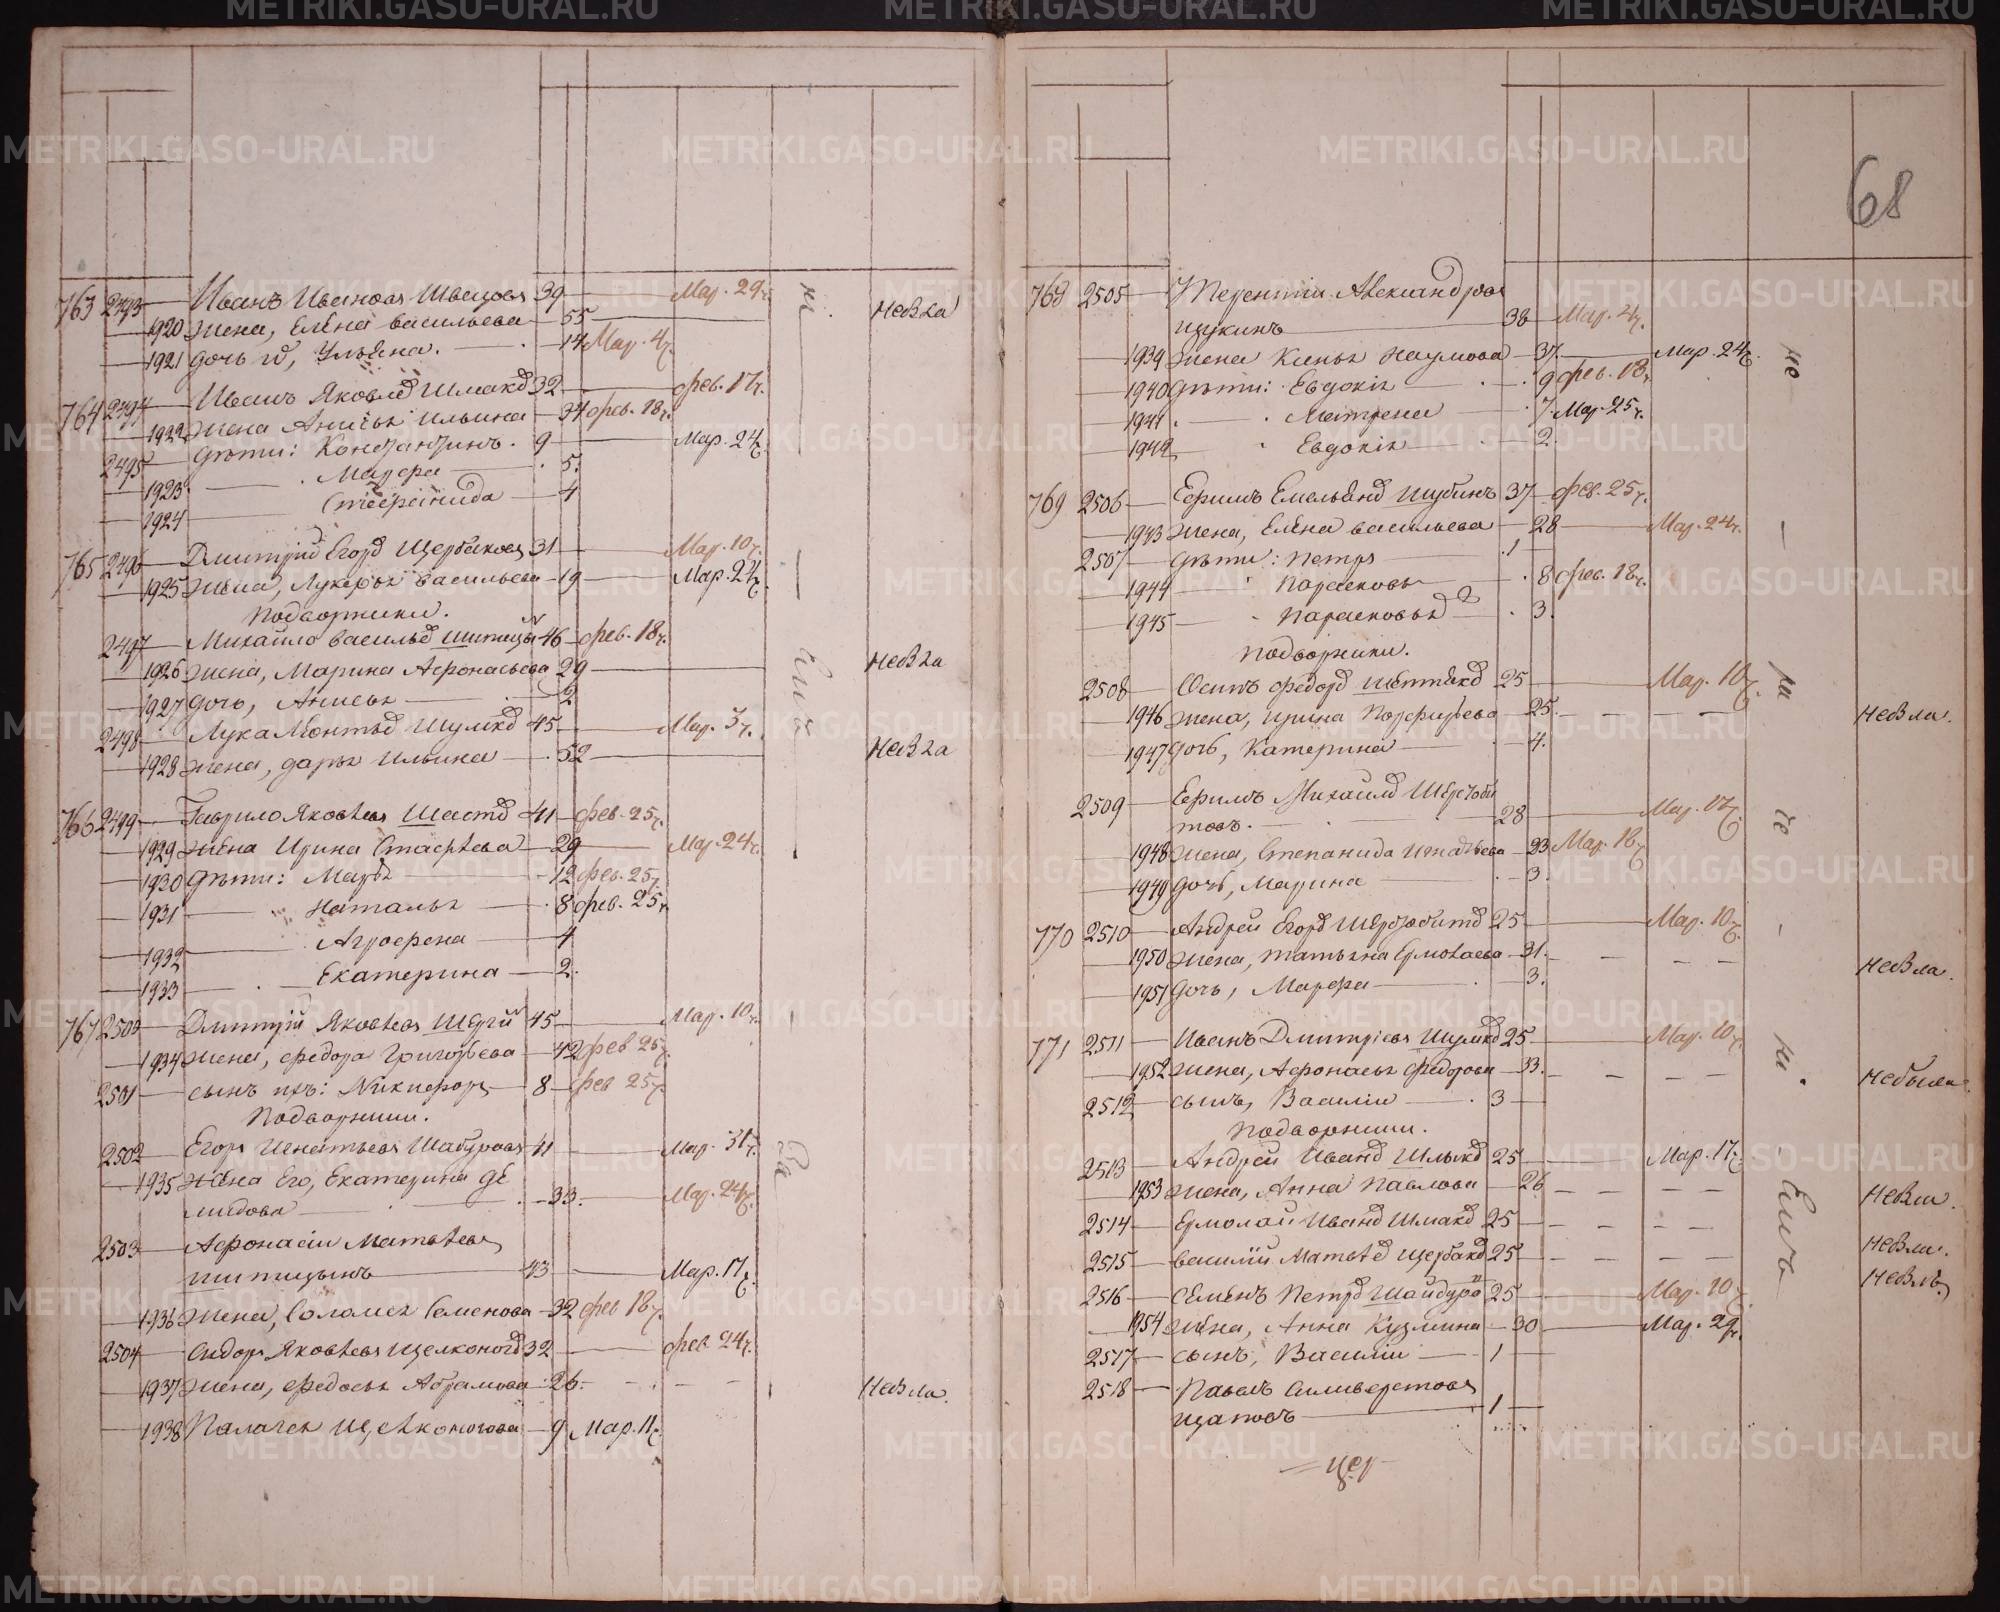 763 2493 Иванъ Ивановъ Швецовъ 39 Мар. 29ч. Небыла
1920 жена, Елена Васильева 55
1921 дочь их, Ульяна. 14 Мар. 4ч.
764 2494 Иванъ Яковлевъ Шмаковъ 32 фев. 17ч.
1922 жена Анисья Ильина 34 фев. 18ч.
2495 дѣти: Констянтинъ. 9 Мар. 24ч.
1923 Марфа 5
1924 Стефанида 4
765 2496 Дмитрій Егоров Щербаковъ 31 Мар. 10ч.
1925 жена, Лукерья Васильева 19 Мар. 24ч.
Подворники.
2497 Михайло Васильев Шипицын 46 фев. 18ч.
1926 жена, Марина Афонасьева 29 Небыла
1927 дочь, Анисья 2
2498 Лука Леонтьев Шумков 45 Мар. 3ч.
1928 жена, Дарья Ильина 52 Небыла
766 2499 Гаврило Яковлевъ Шастов 41 фев. 25ч.
1929 жена Ирина Стафеева 29 Мар. 24ч.
1930 дѣти: Марья 12 фев. 25ч.
1931 Наталья 8 фев. 25ч.
1932 Агрофена 4
1933 Екатерина 2.
767 2500 Дмитрій Яковлевъ 45 Мар. 10ч.
1934 жена, Федора Григорьева 42 фев 25ч.
2501 сынъ их: Никифоръ 8 фев 25ч.
Подворники.
2502 Егоръ Игнатьевъ Шабуровъ 41 Мар. 31ч.
1935 жена Его, Екатерина Де
мидова 33. Мар. 24ч.
2503 Афонасіи Матвеевъ
шипицынъ 43 Мар. 17ч.
1936 жена, Соломея Семенова 32 фев 18ч.
2504 Сидоръ Яковлевъ Щелконогов 32 фев 24ч.
1937 жена, Федосья Абрамова 26. Небыла.
1938 Палагея Щелконогова 9 Мар. 11ч.
68
768 2505 Терентіи Александровъ
щукинъ 38 Мар. 4ч.
1939 жена Ксенья Наумова 37. Мар. 24ч.
1940 дѣти: Евдокія 9 фев. 18ч.
1941 Матрена 7. Мар. 25ч.
1942 Евдокія 2
769 2506 Ефимъ Емельянов Шубинъ 37 фев. 25ч.
1943 жена, Елена Васильева 28 Мар. 24ч.
2507 дѣти: Петръ 1
1944 Парасковья 8 фев. 18ч.
1945 Парасковья 2 3.
Подворники.
2508 Осипъ Федоров 25 Мар. 10ч.
1946 жена, Ирина Порфирьева 25. Небыла.
1947 дочь, Катерина 4.
2509 Ефимъ Михайлов Шерстоби
товъ. 28 Мар. 17ч.
1948 жена, Степанида Игнатьева 23 Мар. 18ч.
1949 дочь, Марина 3.
770 2510 Андрей Егоров Шерстобитов 25 Мар. 10ч.
1950 жена, Татьяна Ермолаева 31. Небыла.
1951 дочь, Марфа 3.
771 2511 Иванъ Дмитріевъ Шумков 25 Мар. 10ч.
1952 жена, Афонасья Федорова 33. Небыла.
2512 сынъ, Василіи 3
Подворники.
2513 Андрей Иванов Шлыков 25 Мар. 17ч.
1953 жена, Анна Павлова 26 Небыла.
2514 Ермолай Иванов Шмаков 25 Небылъ.
2515 Василій Матвеев Щербаков 25 Небылъ.
2516 Семенъ Петров Шайдуров 25 Мар. 10ч.
1954 жена, Анна Кузмина 30 Мар. 29ч.
2517 сынъ, Василіи 1
2518 Павелъ Силиверстовъ
щаповъ 1
цер